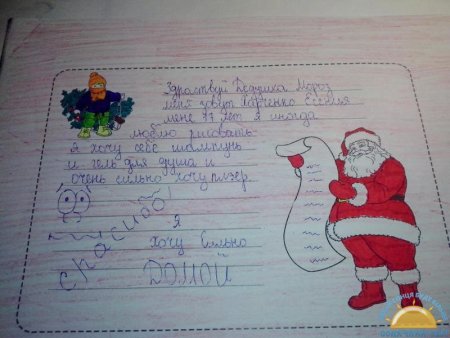 Здраствуй Дедушка Мороз
меня зовут Есения
мене лет я иногда
люблю рисовать
я хочу себе шампунь
и гель для душа и
очень сильно хочу плэер
спасибо!
я
хочу сильно
ДОМОЙ